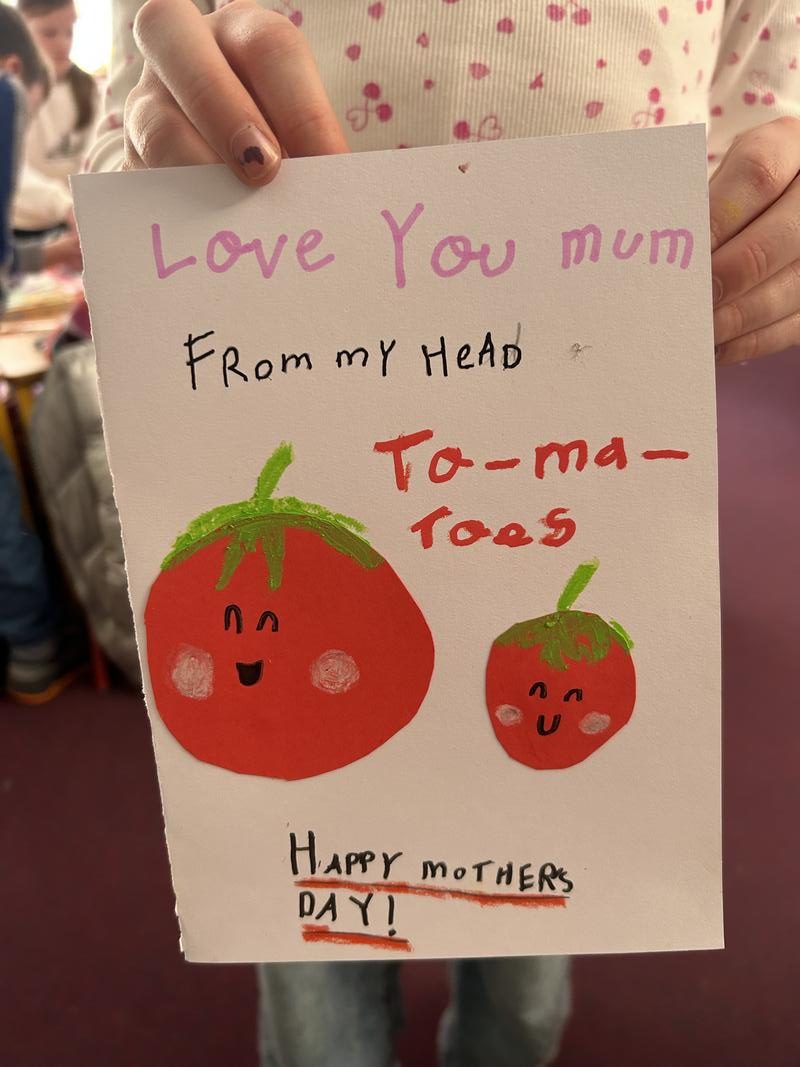 Love You mum
FROM MY HEAD
To-ma-
Toes
HAPPY MOTHERS
DAY!